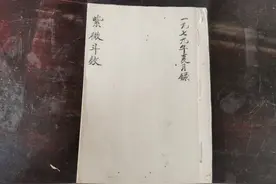 一九七九年月錄
紫微斗数